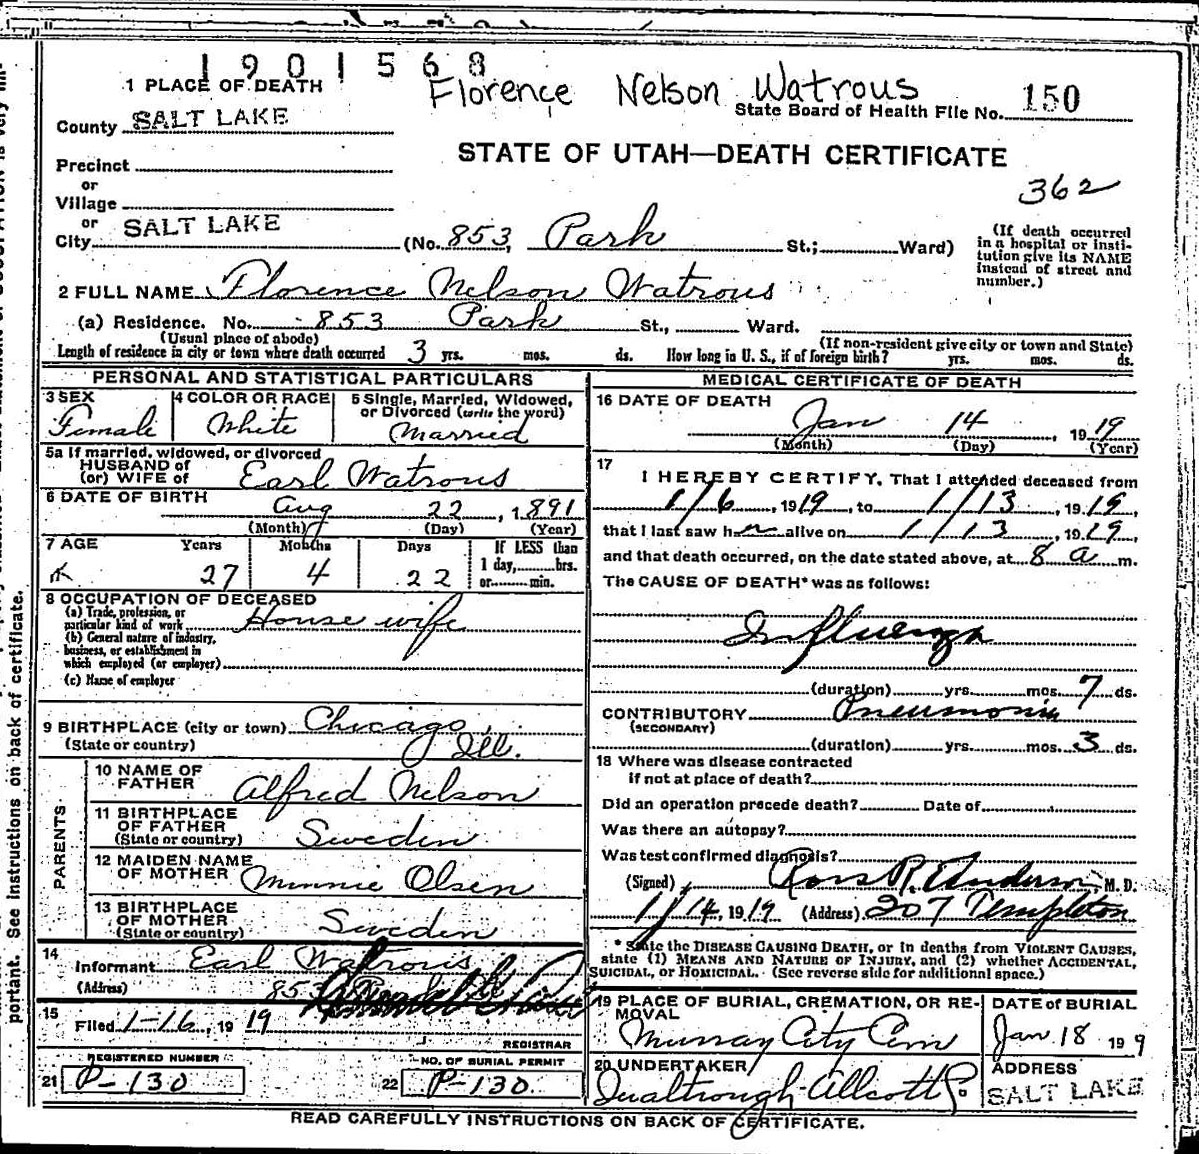 1901568
1 PLACE OF DEATH
Florence Nelson Watrous
State Board of Health File No. 150
County SALT LAKE
STATE OF UTAH—DEATH CERTIFICATE
Precinct
or
362
Village
or
City SALT LAKE (No. 853, Park St.; Ward)
(If death occurred in a hospital or insti-
tution give its NAME
instead of street and
number.)
2 FULL NAME Florence Nelson Watrous
(a) Residence. No. 853 Park St., Ward.
(Usual place of abode) (If non-resident give city or town and State)
Length of residence in city or town where death occurred 3 yrs. mos. ds. How long in U. S., if of foreign birth? yrs. mos. ds.
PERSONAL AND STATISTICAL PARTICULARS
3 SEX
Female
4 COLOR OR RACE
White
5 Single, Married, Widowed,
or Divorced (write the word)
Married
5a If married, widowed, or divorced
HUSBAND of
(or) WIFE of Earl Watrous
6 DATE OF BIRTH Aug 22, 1891
(Month) (Day) (Year)
7 AGE Years Months Days If LESS than
1 day, hrs.
27 4 22 or min.
8 OCCUPATION OF DECEASED
(a) Trade, profession, or
particular kind of work House wife
(b) General nature of industry,
business, or establishment in
which employed (or employer)
(c) Name of employer
9 BIRTHPLACE (city or town) Chicago,
(State or country) Ill.
PARENTS
10 NAME OF
FATHER Alfred Nelson
11 BIRTHPLACE
OF FATHER
(State or country) Sweden
12 MAIDEN NAME
OF MOTHER Minnie Olsen
13 BIRTHPLACE
OF MOTHER
(State or country) Sweden
14
Informant Earl Watrous
(Address) 853
15
Filed 1-16, 1919
REGISTRAR
REGISTERED NUMBER
21 P-130
NO. OF BURIAL PERMIT
22 P-130
MEDICAL CERTIFICATE OF DEATH
16 DATE OF DEATH
Jan 14, 1919
(Month) (Day) (Year)
17
I HEREBY CERTIFY, That I attended deceased from
1/6, 1919, to 1/13, 1919,
that I last saw her alive on 1/13, 1919,
and that death occurred, on the date stated above, at 8 a m.
The CAUSE OF DEATH* was as follows:
Influenza
(duration) yrs. mos. 7 ds.
CONTRIBUTORY Pneumonia
(SECONDARY)
(duration) yrs. mos. 3 ds.
18 Where was disease contracted
if not at place of death?
Did an operation precede death? Date of
Was there an autopsy?
Was test confirmed diagnosis?
(Signed) Ross R. Anderson, M. D.
1/14, 1919 (Address) 207 Templeton
* State the DISEASE CAUSING DEATH, or in deaths from VIOLENT CAUSES,
state (1) MEANS AND NATURE OF INJURY, and (2) whether ACCIDENTAL,
SUICIDAL, or HOMICIDAL. (See reverse side for additional space.)
19 PLACE OF BURIAL, CREMATION, OR RE-
MOVAL
Murray City Cem
DATE OF BURIAL
Jan 18 199
20 UNDERTAKER
ADDRESS
SALT LAKE
READ CAREFULLY INSTRUCTIONS ON BACK OF CERTIFICATE.
portant. See instructions on back of certificate.